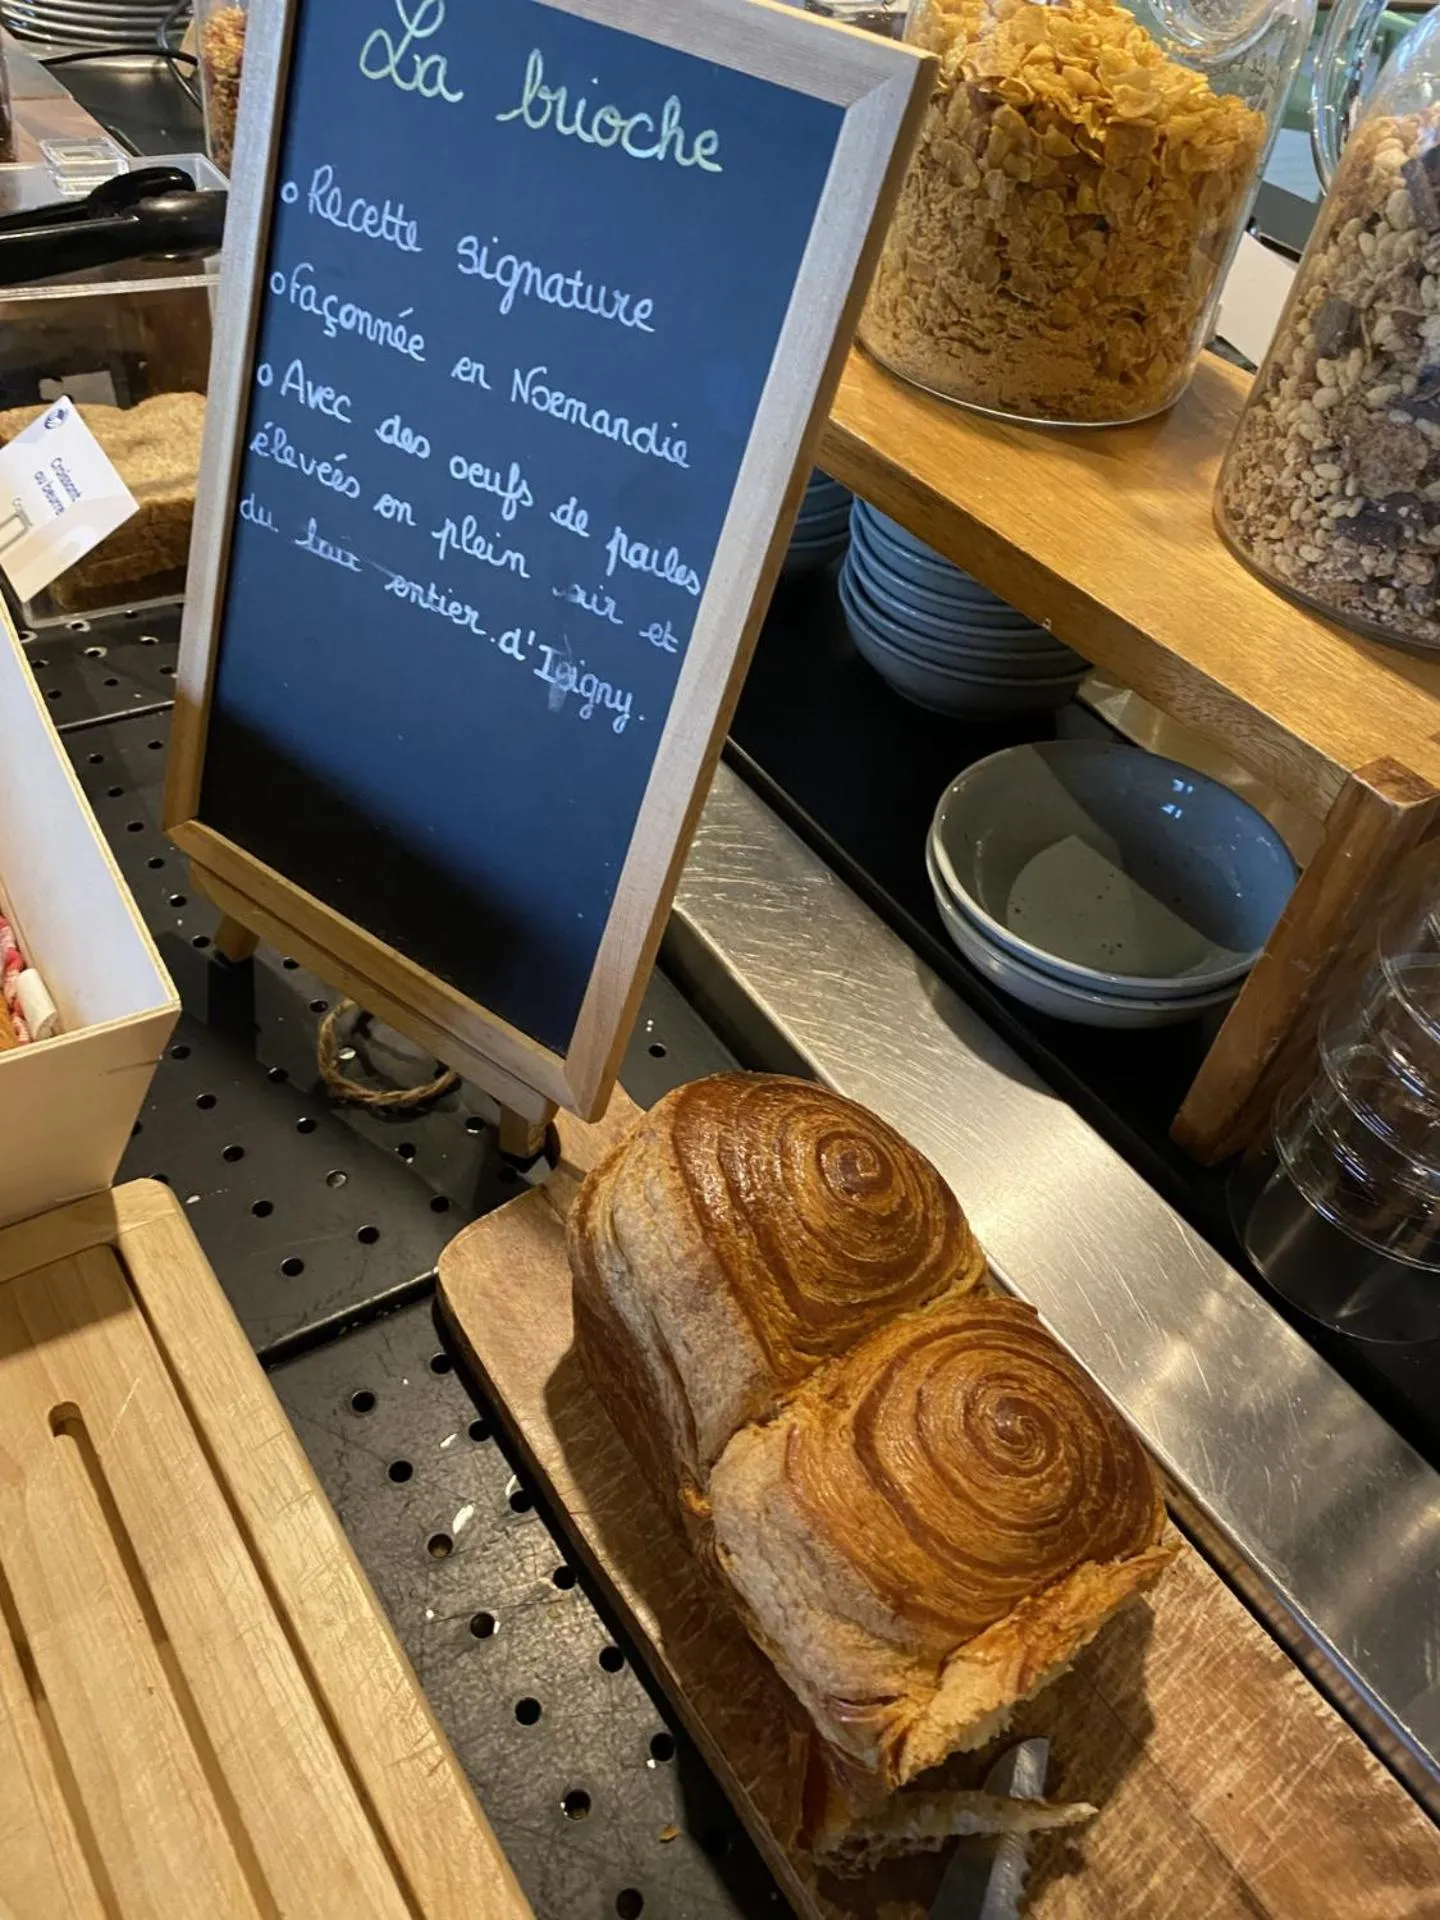 La brioche
° Recette signature
° Façonnée en Normandie
° Avec des oeufs de poules
élevées en plein air et
du lait entier d'Isigny.
Croissant
au beurre